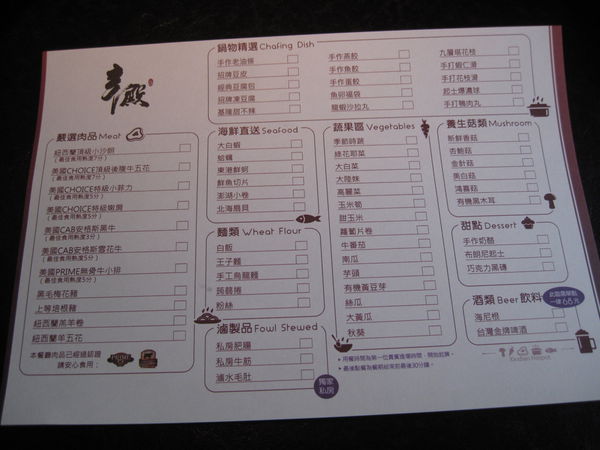 辛殿
鍋物精選 Chafing Dish
手作老油條
招牌豆皮
經典豆腐包
招牌凍豆腐
基隆甜不辣
手作蛋餃
手作魚餃
手作蝦餃
魚卵福袋
龍蝦沙拉丸
九層塔花枝
手打蝦仁滑
手打花枝滑
起士爆漿球
手打鴨肉丸
嚴選肉品 Meat
紐西蘭頂級小沙朗
(最佳食用熟度7分)
美國CHOICE頂級後腹牛五花
(最佳食用熟度7分)
美國CHOICE特級小菲力
(最佳食用熟度5分)
美國CHOICE特級嫩肩
(最佳食用熟度5分)
美國CAB安格斯黑牛
(最佳食用熟度3分)
美國CAB安格斯雪花牛
(最佳食用熟度5分)
美國PRIME無骨牛小排
(最佳食用熟度5分)
黑毛梅花豬
上等培根豬
紐西蘭羔羊卷
紐西蘭羊五花
本餐廳肉品已經過認證
請安心食用：
PRIME
海鮮直送 Seafood
大白蝦
蛤蠣
東港鮮蚵
鮮魚切片
澎湖小卷
北海扇貝
麵類 Wheat Flour
白飯
王子麵
手工烏龍麵
蒟蒻捲
粉絲
滷製品 Fowl Stewed
私房肥腸
私房牛筋
滷水毛肚
獨家
私房
蔬果區 Vegetables
季節時蔬
綠花耶菜
大白菜
大陸妹
高麗菜
玉米筍
甜玉米
蘿蔔片卷
牛番茄
南瓜
芋頭
有機黃豆芽
絲瓜
大黃瓜
秋葵
養生菇類 Mushroom
新鮮香菇
杏鮑菇
金針菇
美白菇
鴻喜菇
有機黑木耳
甜點 Dessert
手作奶酪
布朗尼起士
巧克力黑磚
酒類 Beer 飲料
一律68元
海尼根
台灣金牌啤酒
Hotpot
▸用餐時間為第一位貴賓進場時間，開始起算。
▸最後點餐為餐期結束前最後30分鐘。